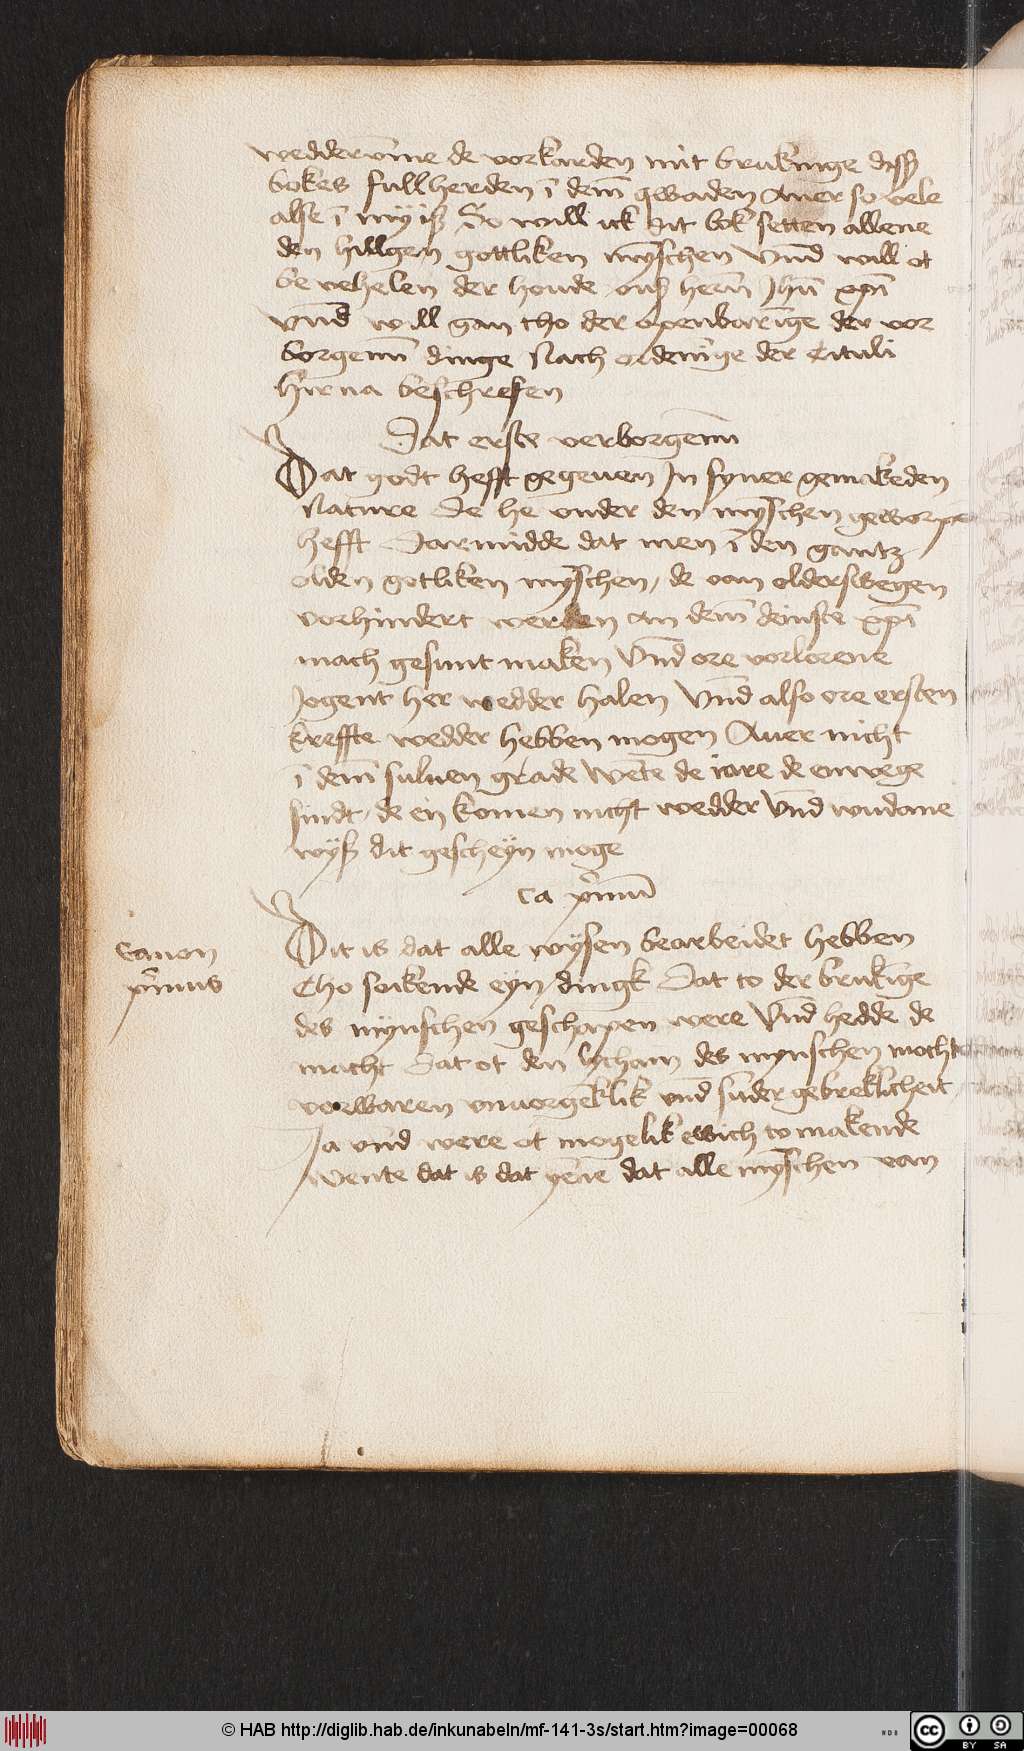 wedderūme de vorkarden mit brukinge dyſſ
bokes fullherden ī dem̄ quaden Auer so vele
alse ī my iß So will ick dit bok setten allene
den hillgen gottliken mȳschen Vnd will ot
bevehelen der houde onß herñ Jhū xpī
vnd will gan tho der openbarīge der vor
borgenn dinge Nach ordenīge der tituli
hirna beschrefen
Dat erste verborgenn
Dat godt hefft gegeuen In syner gemakeden
Nature De he vnder den mȳschen geworpē
hefft Darmidde dat men ī den gantz
olden gotliken mȳschen, de van olderßwegen
vorhindert werden an dem̄ deinste xpī
mach gesunt maken Vnd ore vorlorene
Jogent her wedder halen Vnd also ore ersten
kreffte wedder hebben mogen Auer nicht
ī dem̄ suluen grade Wēte de iare de enwege
sindt, de en komen nicht wedder Vnd wudane
wyß dit gescheyn moge
Ca p̄imū
Canon
p̄imus
Dit is dat alle wysen bearbeidet hebben
Tho soikende eyn dingk Dat to der brukīge
des mynschen geschapen were Vnd hedde de
macht Dat ot den lycham̄ des mynschen mocht
vorwaren vnuorgēklik vnd sūder gebreklicheit
Ja vnd were ot mogelik ewich to makende
Wente dat is dat yēne dat alle mȳschen van
© HAB http://diglib.hab.de/inkunabeln/mf-141-3s/start.htm?image=00068
WDB
CC
BY SA